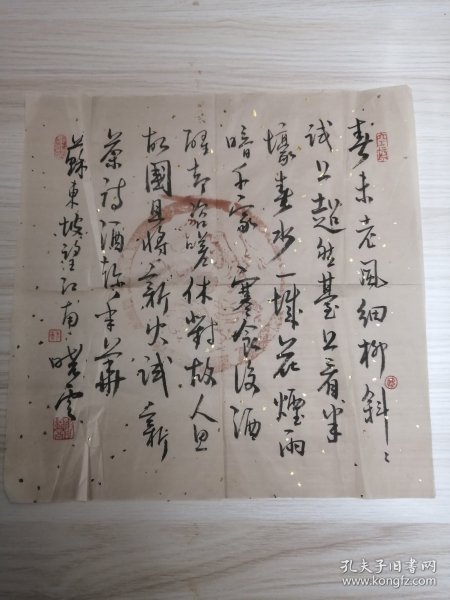 春未老風細柳斜〻
试上超然臺上看半
壕春水一城花煙雨
暗千家 寒食後酒
醒却咨嗟休對故人思
故國且將新火试新
茶诗酒趁年華
蘇東坡望江南 曉雲
孔夫子旧书网
www.kongfz.com